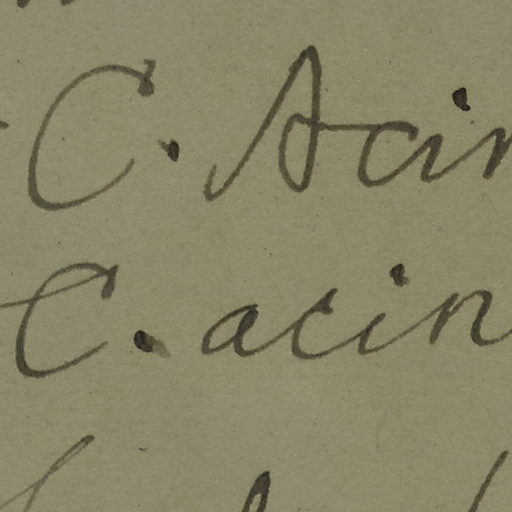 C. Acin
C. acin